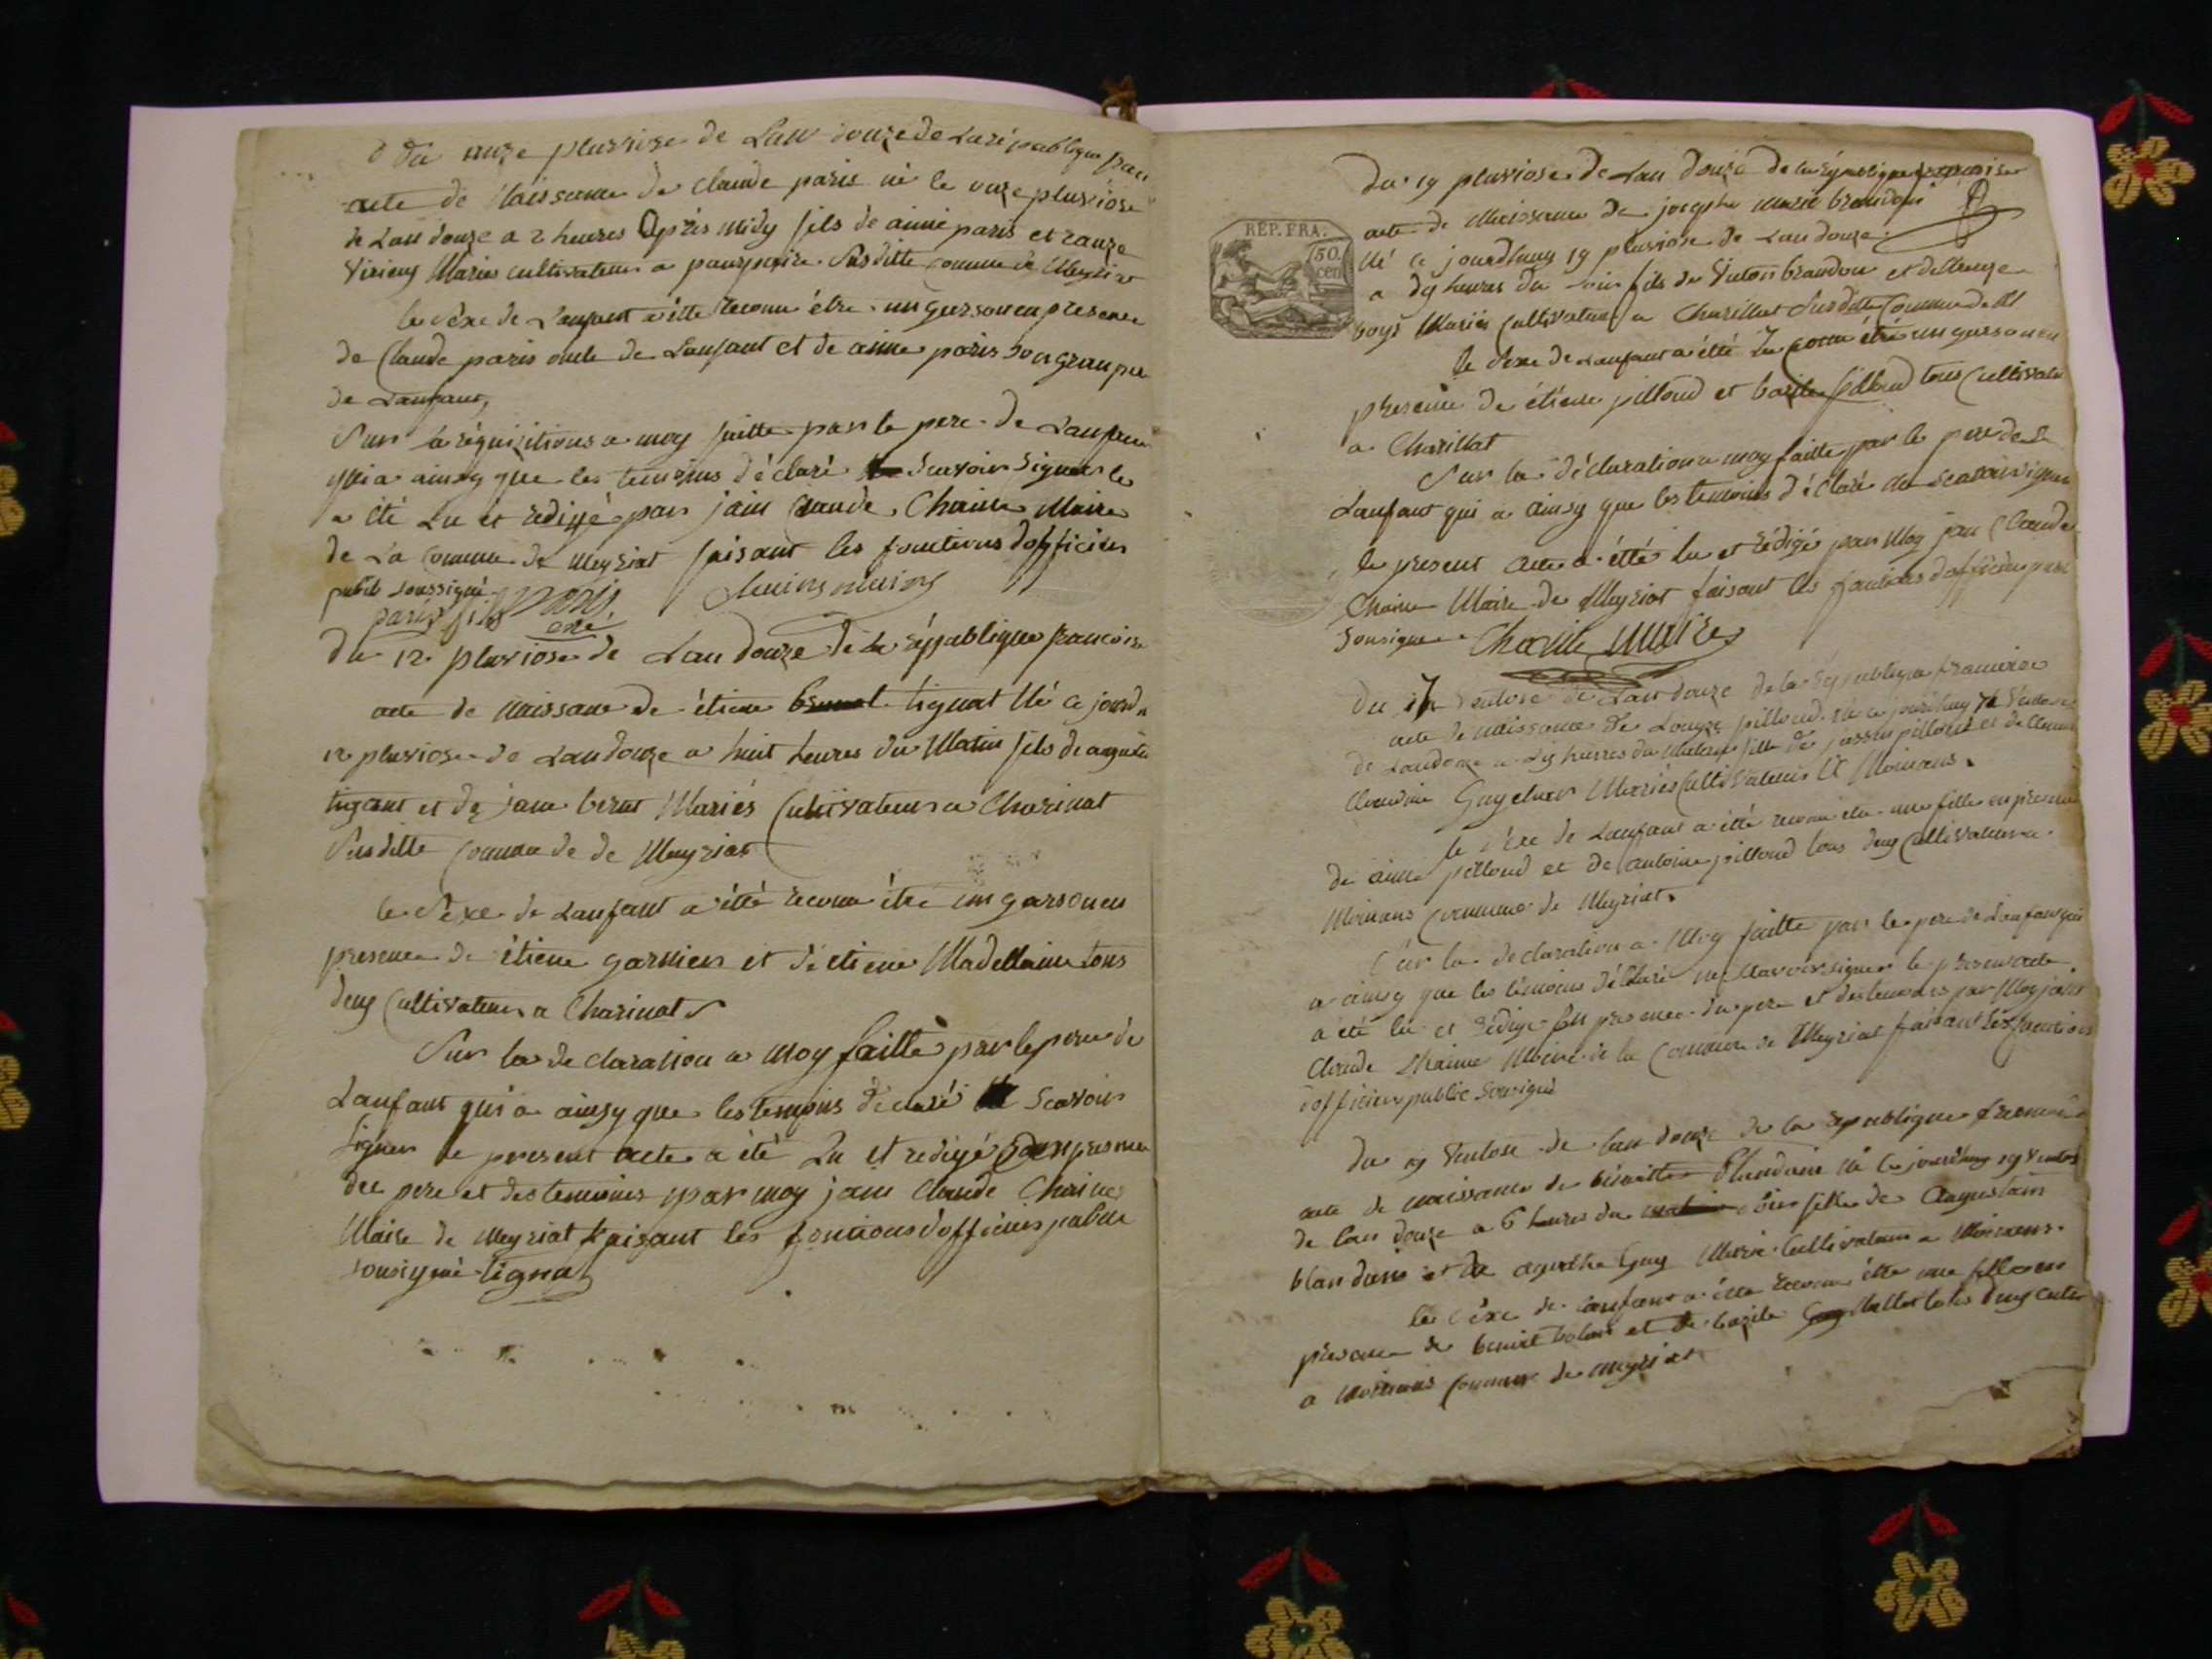 du onze pluviose de Lan douze de La république fran
acte de Naissance de claude paris né le onze pluviose
de Lan douze a 2 heures Après midy fils de aimé paris et
Maries cultivateurs a susditte comune de Meyriat
le sèxe de L'anfant a été reconu être un garson en presence
de Claude paris oncle de Lanfant et de aimé paris son gran per
de Lanfant,
Sur la réquizitions a moy faitte par le pere de Lanfan
qui a ainsy que les temoins déclaré scavoir signer le
a été Lu et redigé par jain Claude Chaine Maire
de La Comune de Meyriat faisant les fonctions dofficier
public soussigné
paris fils paris
du 12 pluviose de Lan douze de La république francoise
acte de Naissance de étiene tignat Né ce jourd
12 pluviose de Lan douze a huit heures du Matin fils de
et de jane Mariés Cultivateurs a Charinat
Susditte Comune de de Meyriat
le sexe de Lanfant a été reconu être un garson en
presence de étiene garnier et de étiene Madellaine tous
deux Cultivateurs a Charinat
Sur la declaration a Moy faitte par le pere de
Lanfant qui a ainsy que les temoins declaré scavoir
signer le present acte a été Lu et redigé en presence
du pere et des temoins par moy jain Claude Chaine
Maire de Meyriat faisant les fonctions dofficier public
sousigné tignat
du 19 pluviose de Lan douze de la république francoise
REP. FRA.
50 cen
acte de Naissance de joseph marie brandon
Né ce jourdhuy 19 pluviose de Lan douze
a dix heures du soir fils de brandon et de
Mariés Cultivateurs a Charillat Susditte Comune de M
le sexe de Lanfant a été reconu être un garson en
presence de étiene pilloud et bazile pilloud tous Cultivate
a Charillat
Sur la déclaration a moy faitte par le pere de
Lanfant qui a ainsy que les temoins déclaré ne scavoir signer
le present acte a été lu et rédigé par Moy jan Claude
Chaine Maire de Meyriat faisant les fonctions dofficier
sousigné Chaine maire
du ventose de Lan douze de la république francoise
acte de naissance de Louyse pilloud né ce jourdhuy ventose
de Lan douze a dix heures du Matin fille de pilloud et de
Claudine Mariés Cultivateurs a Moinans
le sexe de Lanfant a été reconu etre une fille en presence
de aimé pilloud et de antoine pilloud tous deux Cultivateurs a
Moinans Comune de Meyriat
Sur la declaration a Moy faitte par le pere de Lanfant qui
a ainsy que les témoins déclaré ne scavoir signer le present acte
a été lu et rédigé en presence du pere et des temoins par Moy jain
Claude Chaine Maire de la Comune de Meyriat faisant les fonctions
dofficier public sousigné
du 19 ventose de lan douze de la republique francaise
acte de naissance de Blandain né ce jourdhuy 19 ventos
de lan douze a 6 heures du soir fille de Augustain
blandain et de agathe Guy Marié Cultivateurs a Moinans
le sèxe de lanfant a été reconu être une fille en
presence de benoit et de bazile tous deux culti
a Moinans Comune de meyriat